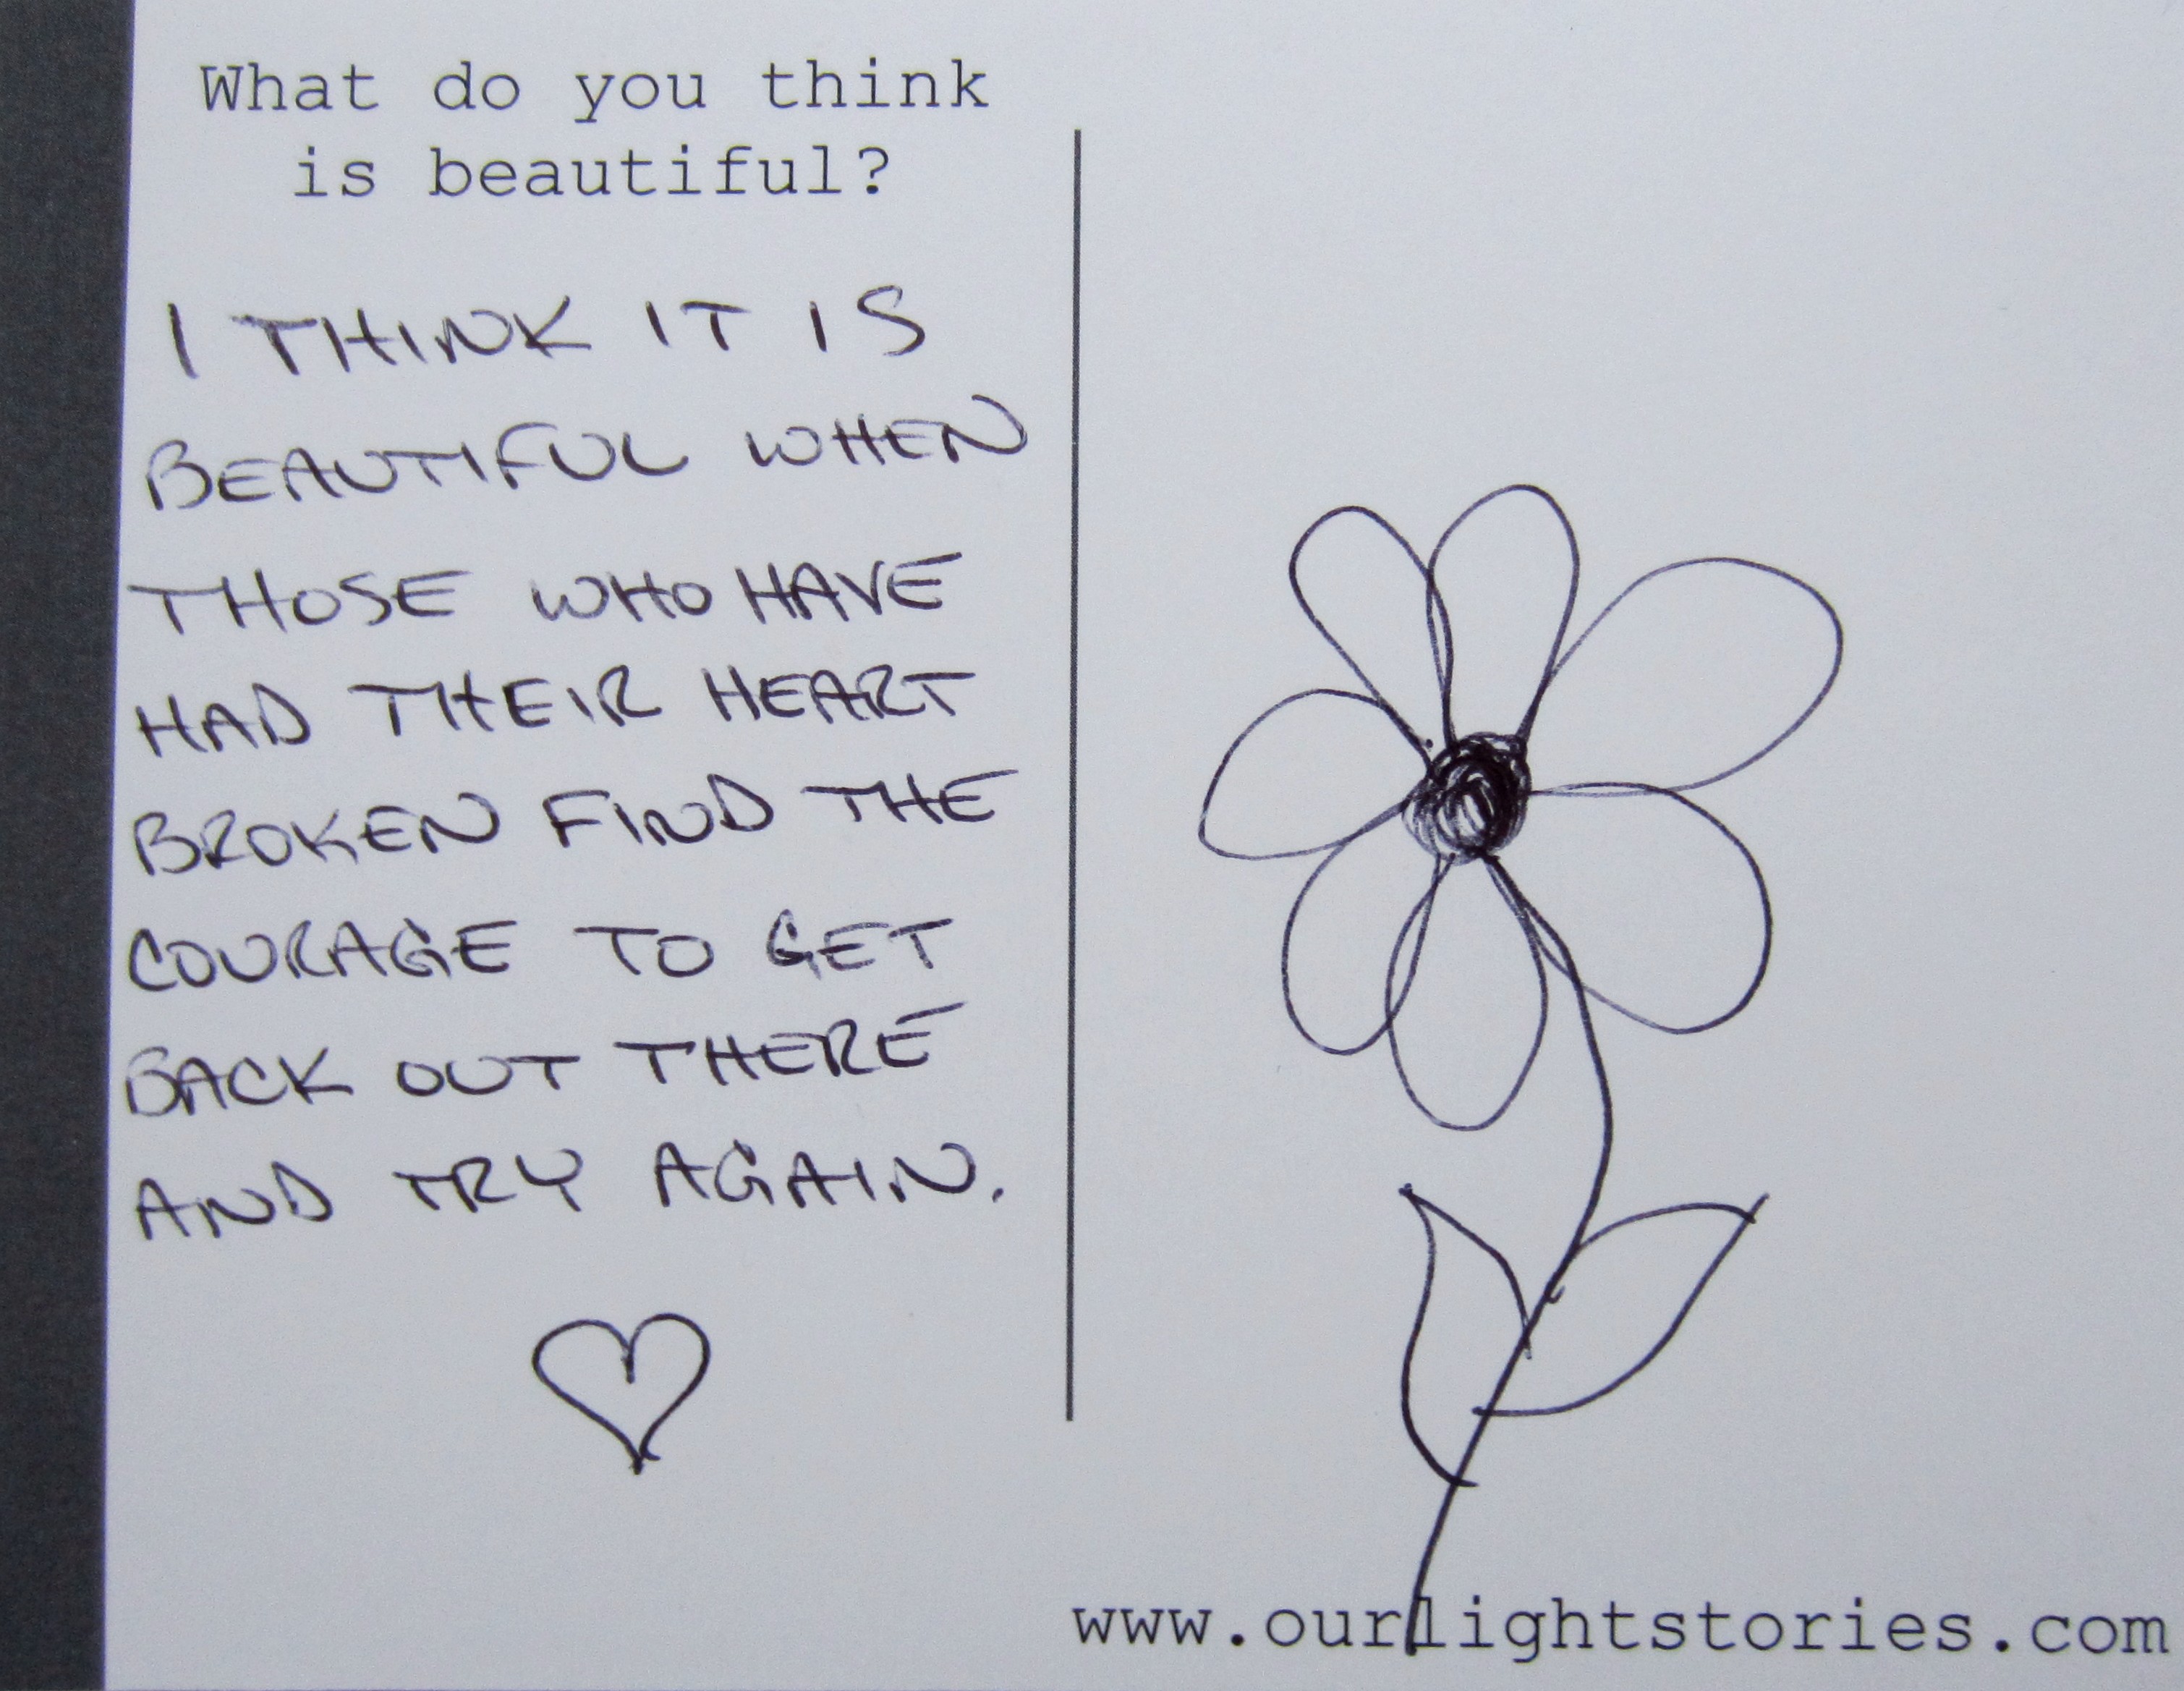 What do you think
is beautiful?
I THINK IT IS
BEAUTIFUL WHEN
THOSE WHO HAVE
HAD THEIR HEART
BROKEN FIND THE
COURAGE TO GET
BACK OUT THERE
AND TRY AGAIN.
www.ourlightstories.com